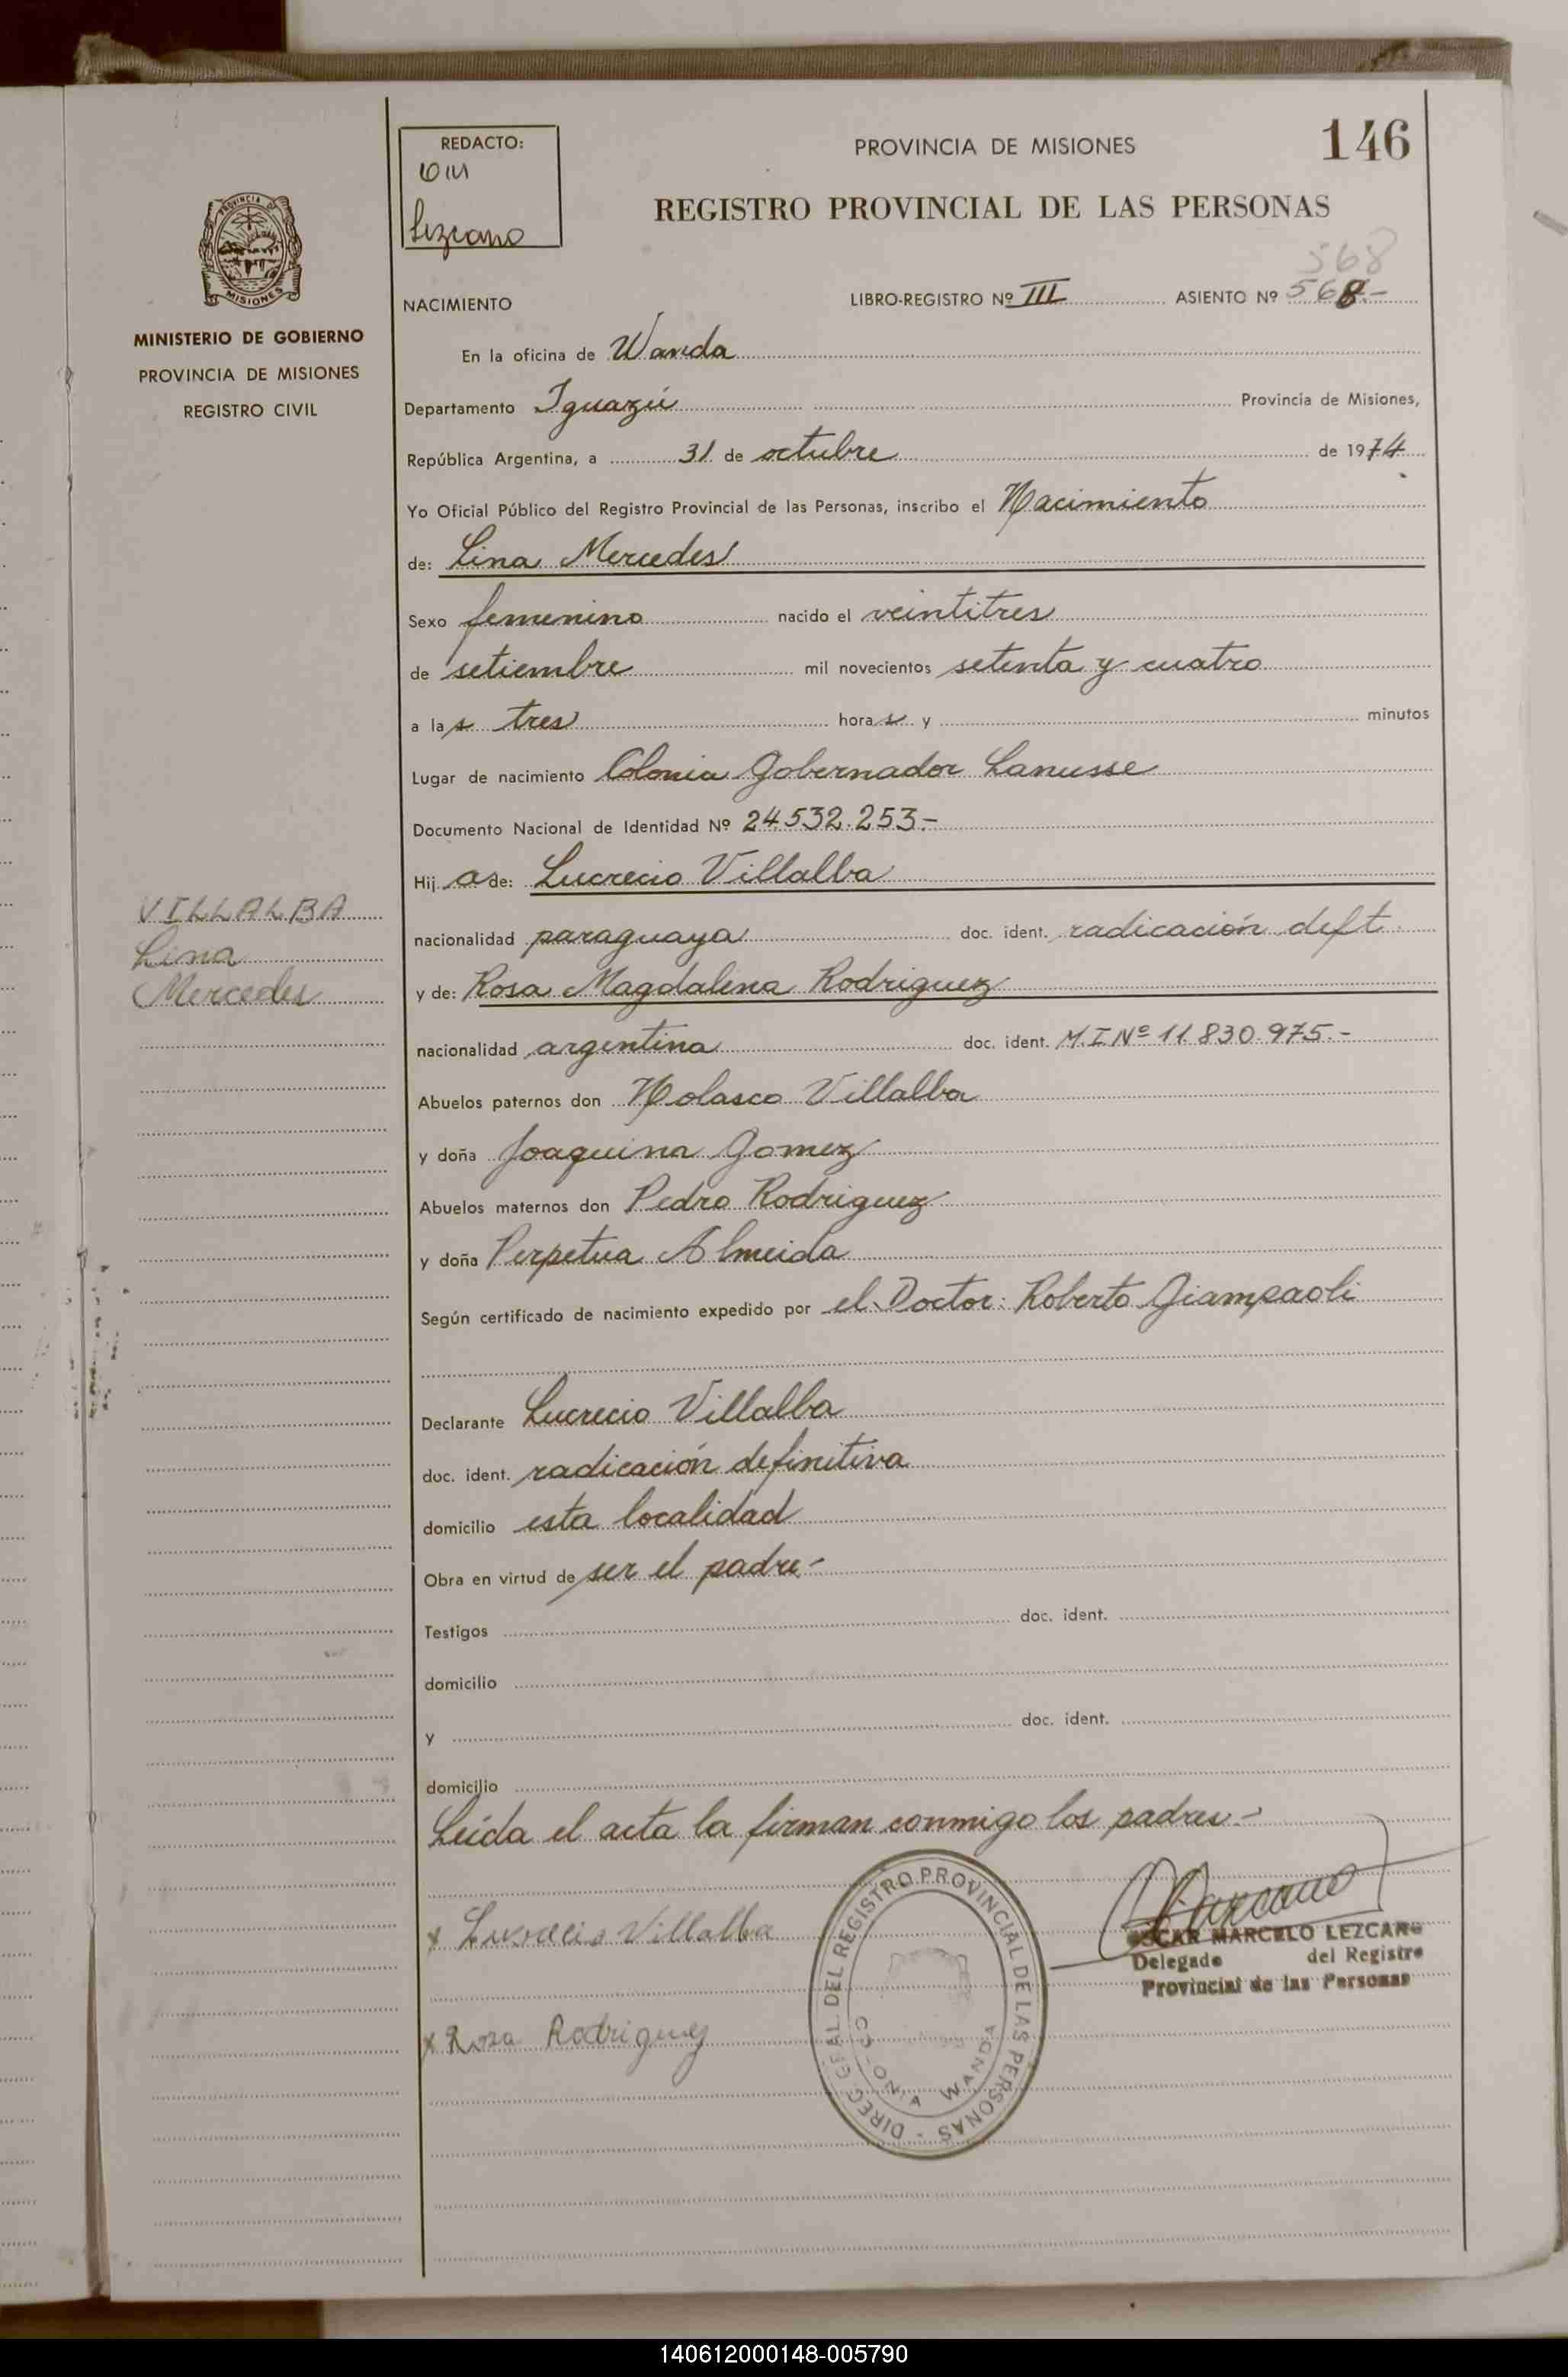 REDACTO:
Lezcano
PROVINCIA DE MISIONES
146
REGISTRO PROVINCIAL DE LAS PERSONAS
PROVINCIA DE
MISIONES
MINISTERIO DE GOBIERNO
PROVINCIA DE MISIONES
REGISTRO CIVIL
568
NACIMIENTO LIBRO-REGISTRO Nº III ASIENTO Nº 568.-
En la oficina de Wanda
Departamento Iguazú Provincia de Misiones,
República Argentina, a 31 de octubre de 1974
Yo Oficial Público del Registro Provincial de las Personas, inscribo el Nacimiento
de: Lina Mercedes
Sexo femenino nacido el veintitres
de setiembre mil novecientos setenta y cuatro
a las tres horas y minutos
Lugar de nacimiento Colonia Gobernador Lanusse
Documento Nacional de Identidad Nº 24.532.253.-
Hij a de: Lucrecio Villalba
VILLALBA
Lina
Mercedes
nacionalidad paraguaya doc. ident. radicación deft.
y de: Rosa Magdalena Rodriguez
nacionalidad argentina doc. ident. M.I Nº 11.830.975.-
Abuelos paternos don Nolasco Villalba
y doña Joaquina Gomez
Abuelos maternos don Pedro Rodriguez
y doña Perpetua Almeida
Según certificado de nacimiento expedido por el Doctor: Roberto Giampaoli
Declarante Lucrecio Villalba
doc. ident. radicación definitiva
domicilio esta localidad
Obra en virtud de ser el padre.-
Testigos doc. ident.
domicilio
y doc. ident.
domicilio
Leída el acta la firman conmigo los padres.-
x Lucrecio Villalba
x Rosa Rodriguez
DIREC. GRAL. DEL REGISTRO PROVINCIAL DE LAS PERSONAS -
COLONIA WANDA
OSCAR MARCELO LEZCANO
Delegado del Registro
Provincial de las Personas
140612000148-005790